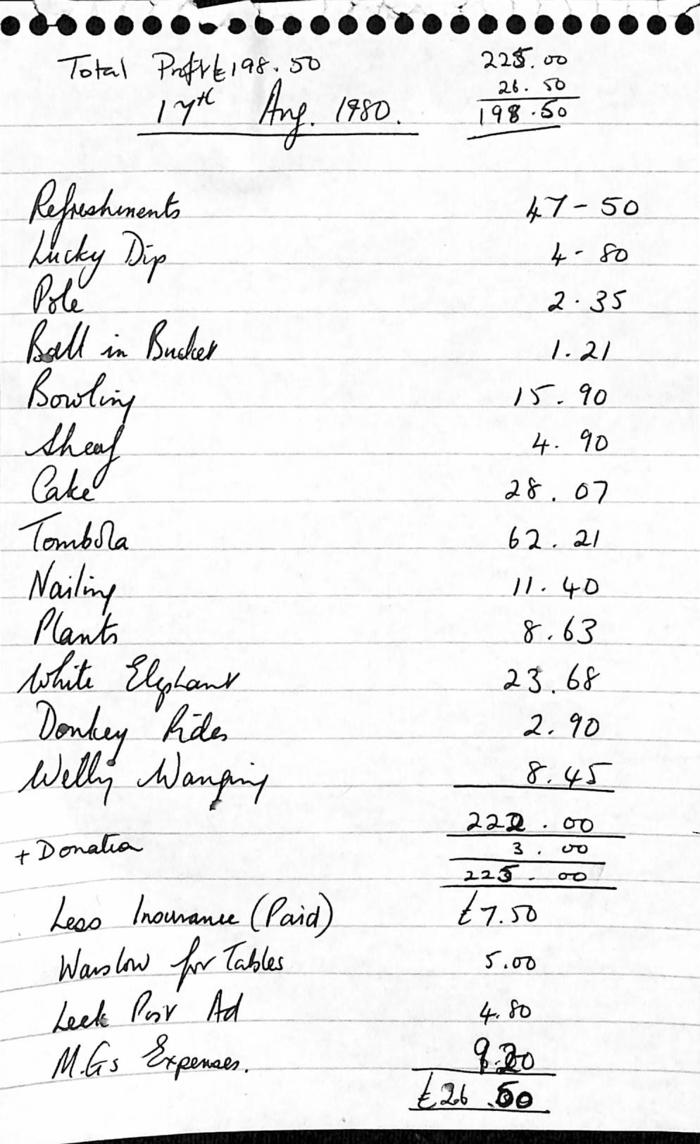 Total Profit £198.50 225.00
26.50
17th Aug. 1980. 198.50
Refreshments 47-50
Lucky Dip 4-80
Pole 2.35
Ball in Bucket 1.21
Bowling 15.90
Sheaf 4.90
Cake 28.07
Tombola 62.21
Nailing 11.40
Plants 8.63
White Elephant 23.68
Donkey Rides 2.90
Welly Wanging 8.45
222.00
+ Donation 3.00
225.00
Less Insurance (Paid) £7.50
Warslow for Tables 5.00
Leek Post Ad 4.80
M.Gs Expenses. 9.20
£26.50